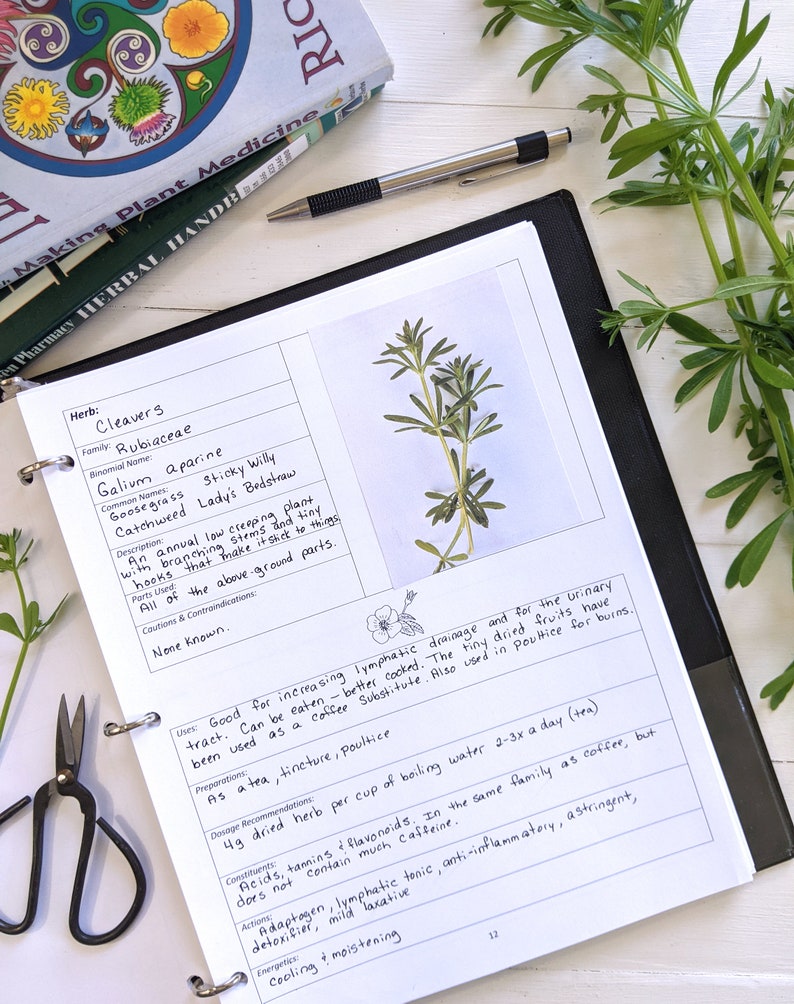 RIC
Making Plant Medicine
HERBAL HANDB
en Pharmacy
Herb:
Cleavers
Family: Rubiaceae
Binomial Name:
Galium aparine
Common Names:
Goosegrass Sticky Willy
Catchweed Lady's Bedstraw
Description:
An annual low creeping plant
with branching stems and tiny
hooks that make it stick to things.
Parts Used:
All of the above-ground parts.
Cautions & Contraindications:
None Known.
Uses: Good for increasing lymphatic drainage and for the urinary
tract. Can be eaten - better cooked. The tiny dried fruits have
been used as a coffee substitute. Also used in poultice for burns.
Preparations:
As a tea, tincture, poultice
Dosage Recommendations:
4g dried herb per cup of boiling water 2-3x a day (tea)
Constituents:
Acids, tannins & flavonoids. In the same family as coffee, but
does not contain much caffeine.
Actions:
Adaptogen, lymphatic tonic, anti-inflammatory, astringent,
detoxifier, mild laxative
Energetics:
Cooling & moistening
12